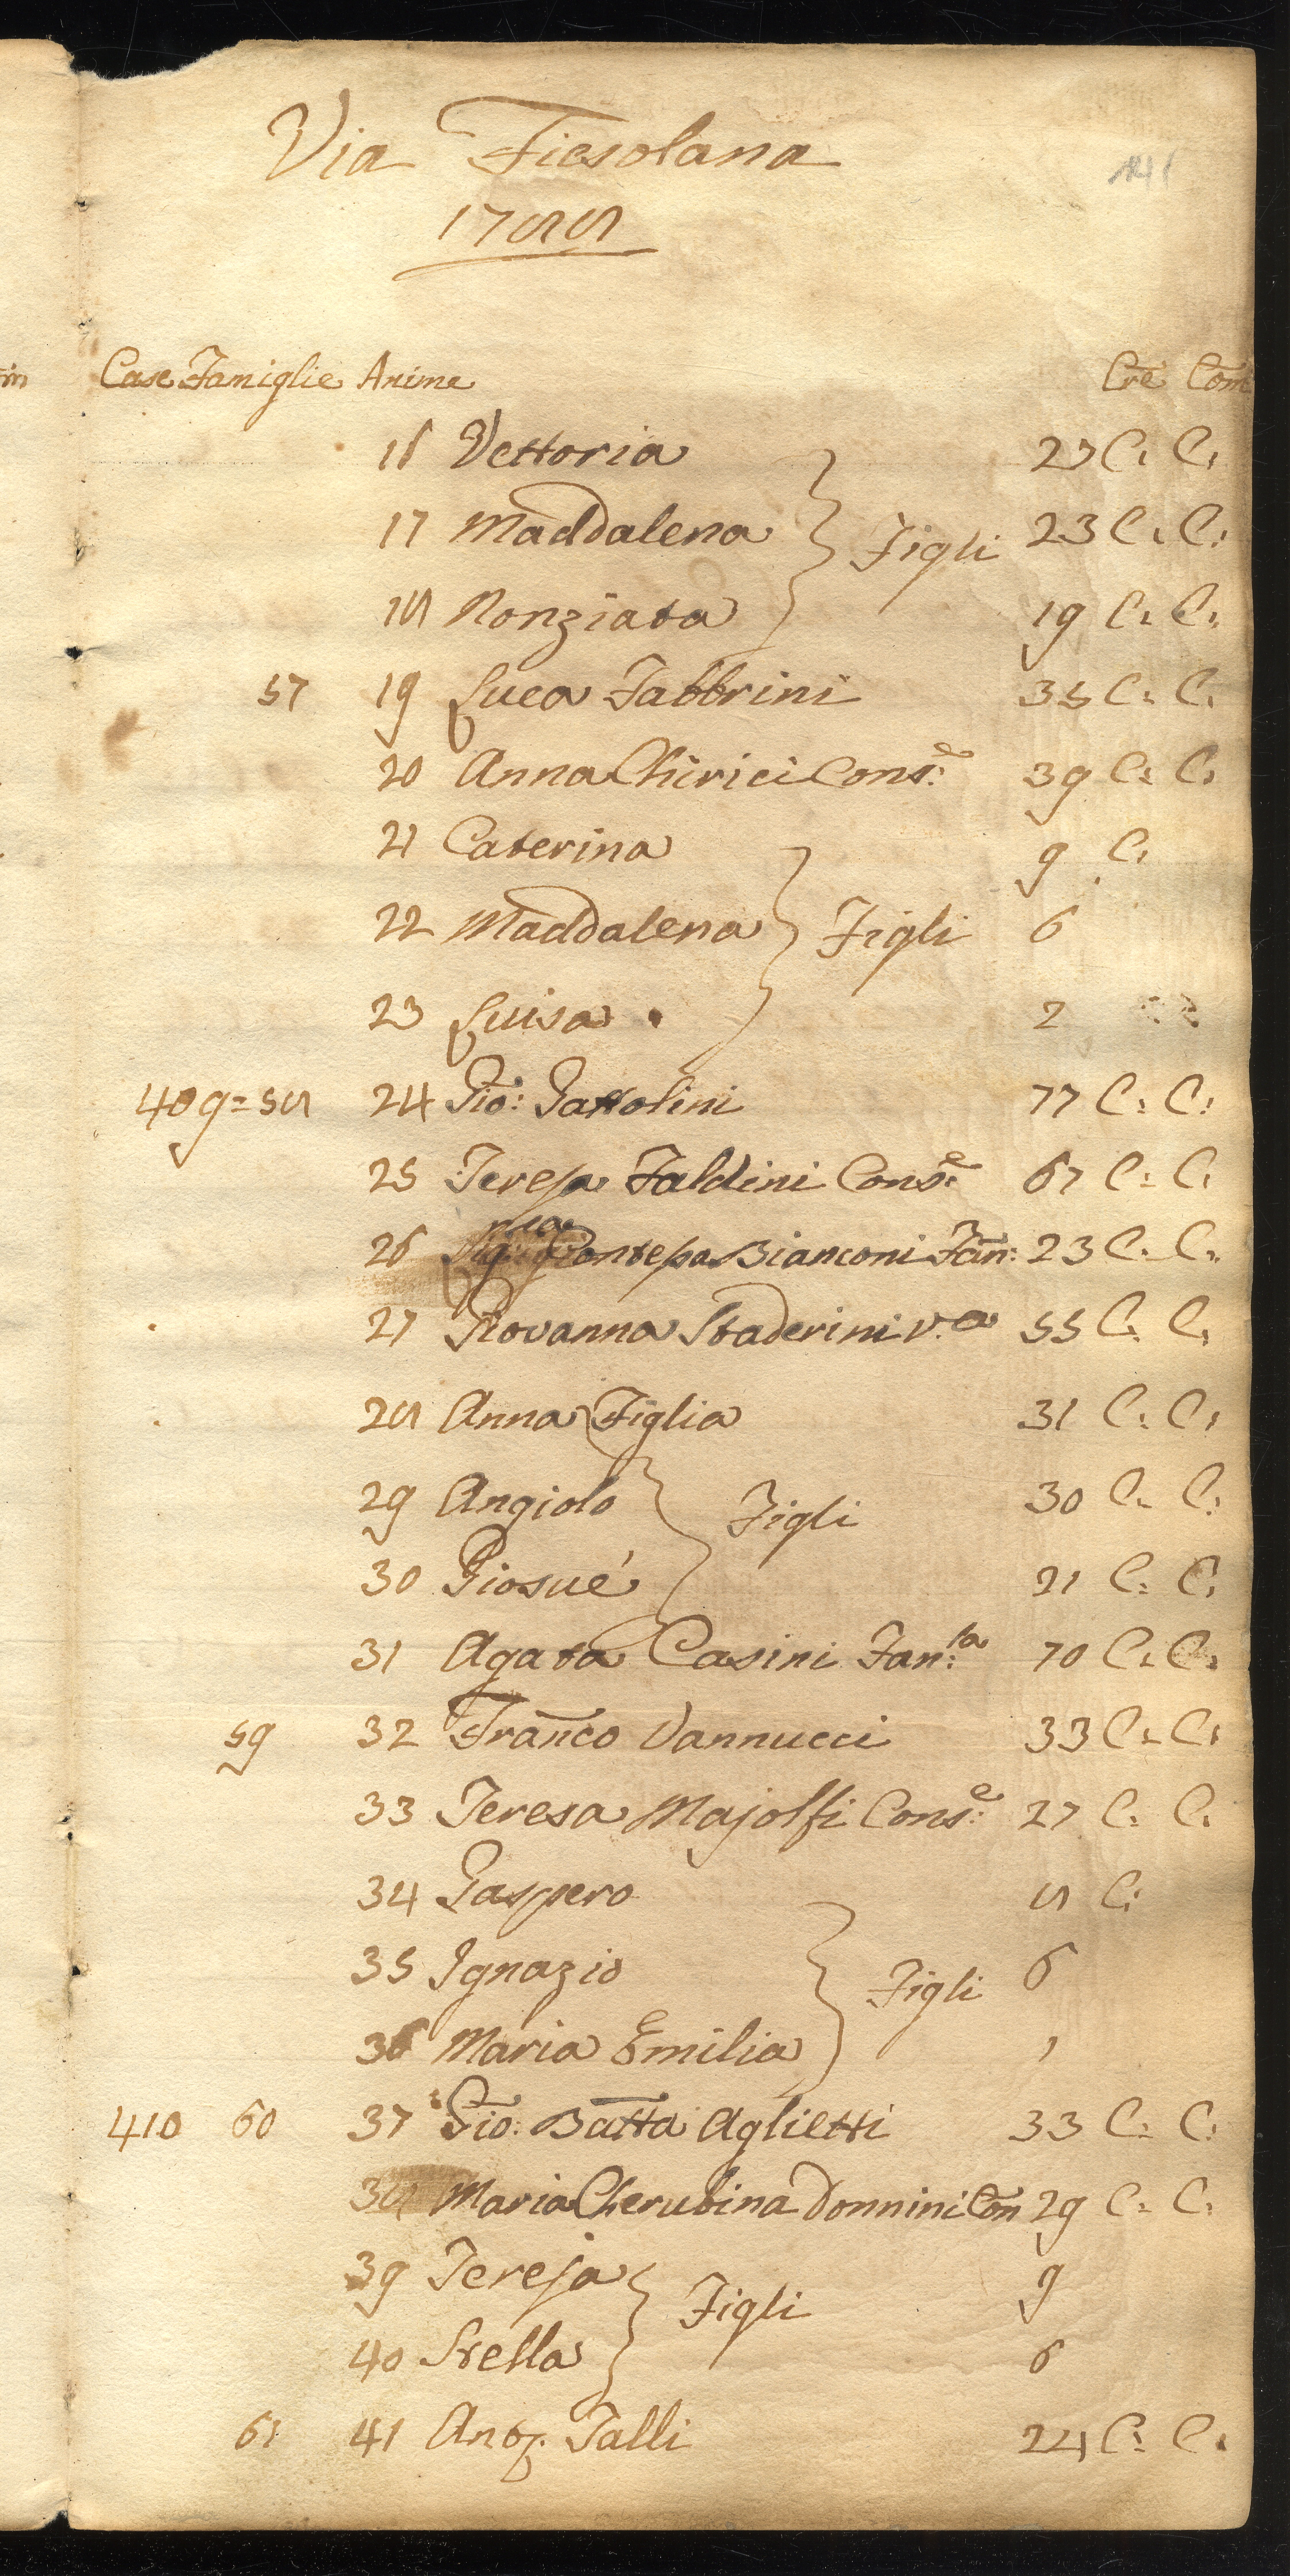 Via Fiesolana
1788
Case Famiglie Anime Cre Com
16 Vettoria 27 C. C.
17 Maddalena Figli 23 C. C.
18 Nonziata 19 C. C.
57 19 Luca Fabbrini 35 C. C.
20 Anna Chirici Cons:e 39 C. C.
21 Caterina 9 C.
22 Maddalena Figli 6
23 Luisa 2
409=58 24 Gio: Gattolini 77 C. C.
25 Teresa Faldini Cons:e 67 C. C.
26 Contessa Bianconi Fan: 23 C. C.
27 Giovanna Staderini v.a 55 C. C.
28 Anna Figlia 31 C. C.
29 Angiolo Figli 30 C. C.
30 Giosué 21 C. C.
31 Agata Casini Fan:la 70 C. C.
59 32 Franco Vannucci 33 C. C.
33 Teresa Majolfi Cons:e 27 C. C.
34 Gaspero 8 C.
35 Ignazio Figli 6
36 Maria Emilia 1
410 60 37 Gio: Batta Aglietti 33 C. C.
38 Maria Cherubina Donnini Con 29 C. C.
39 Teresa Figli 9
40 Stella 6
61 41 Anto. Talli 24 C. C.